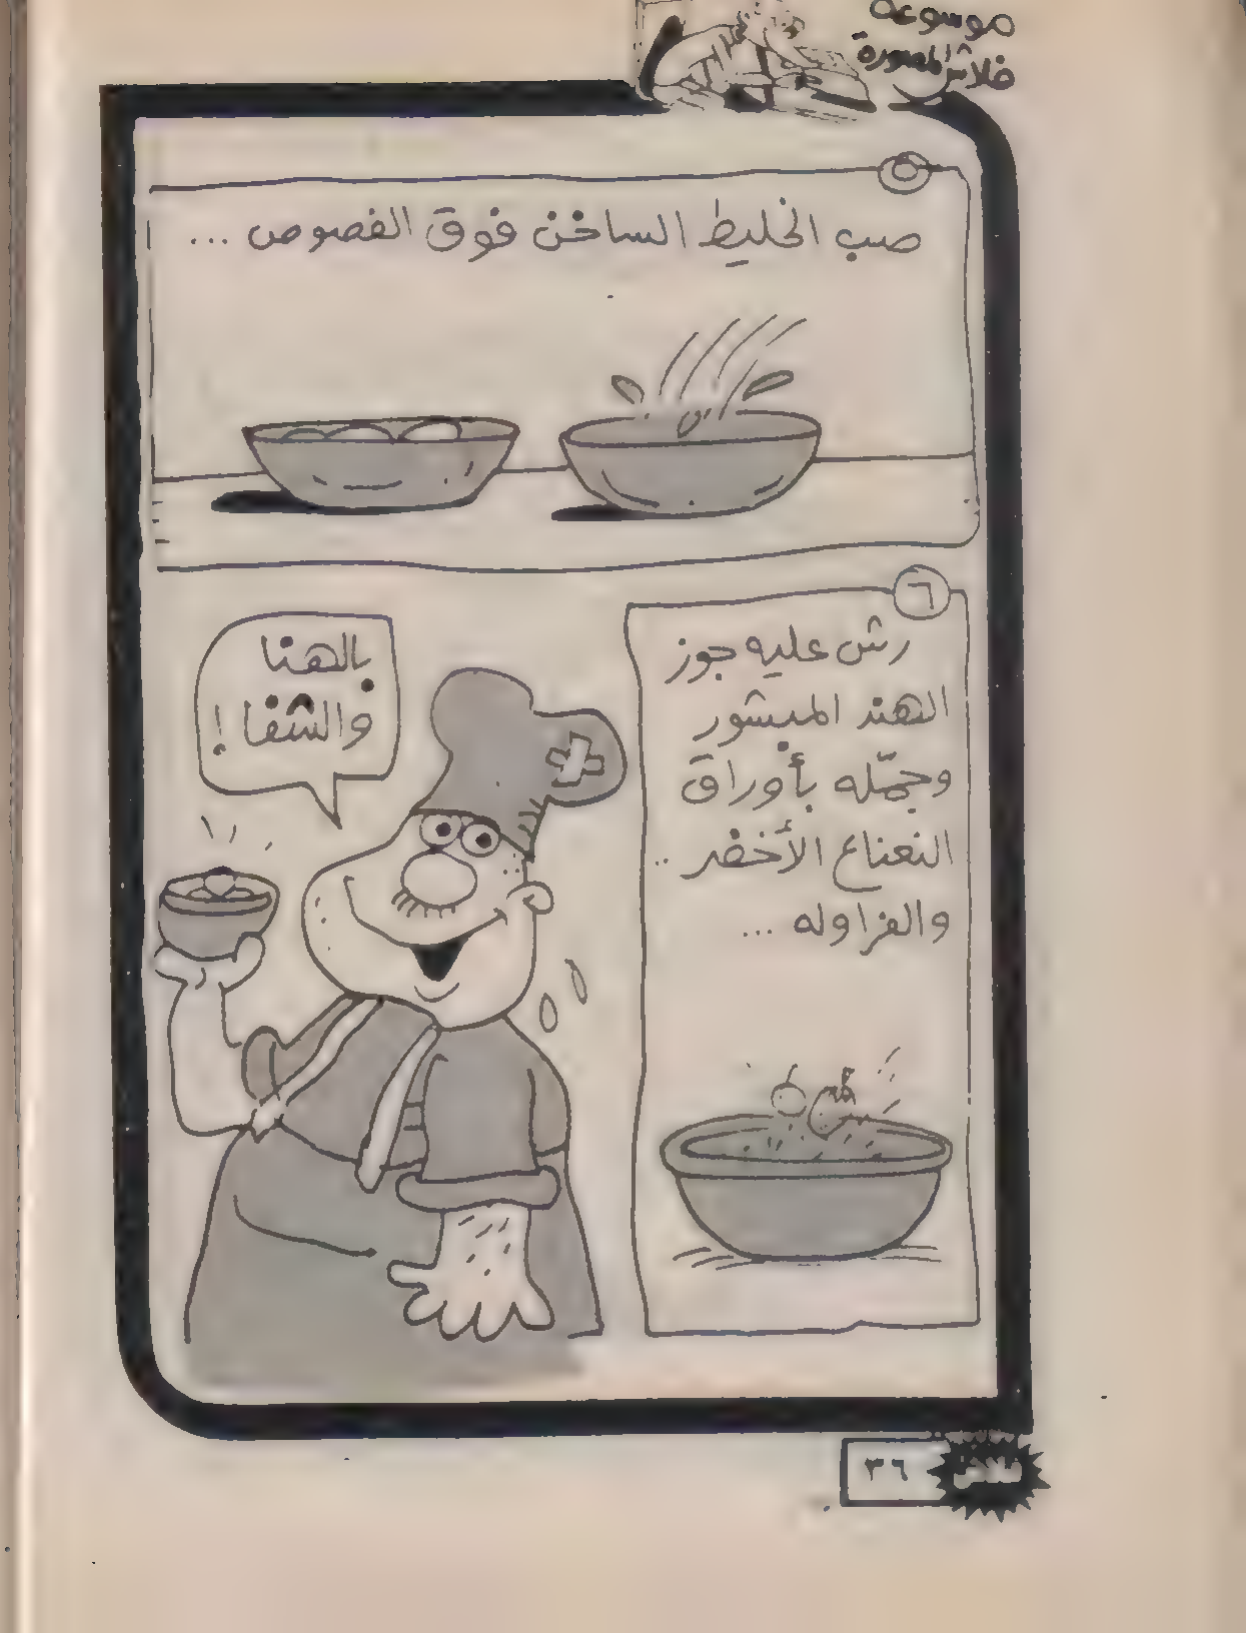 موسوعة
فلاش المصورة
٥
صب الخليط الساخن فوق الفصوص ...
٦
رش عليه جوز
الهند المبشور
وجمّله بأوراق
النعناع الأخضر ..
والفراوله ...
بالهنا
والشفا !
فلاش
٣٦